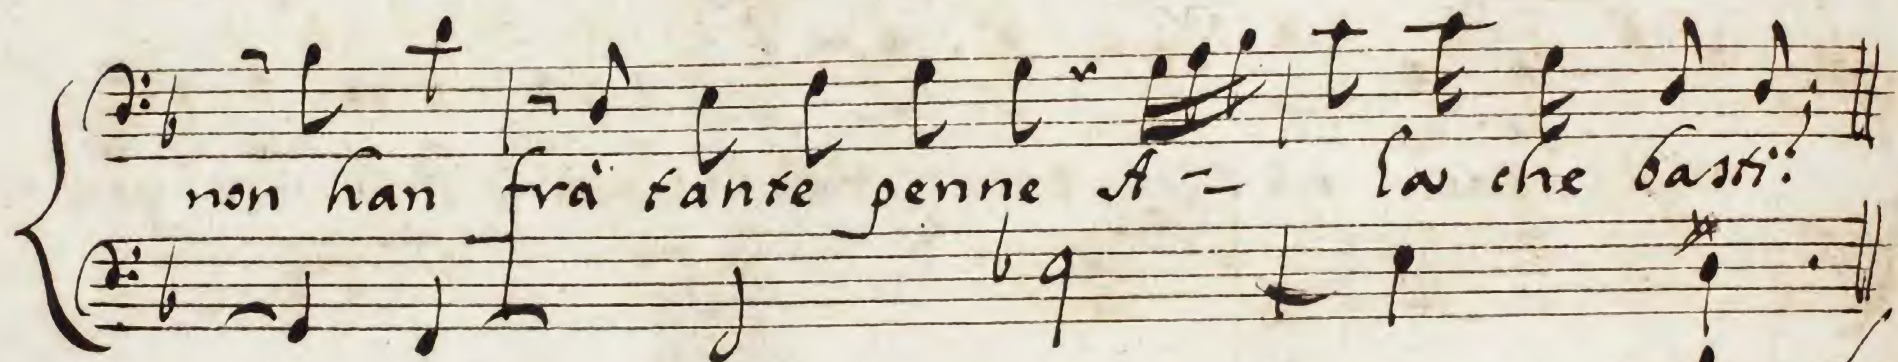 non han frà tante penne A-- la che basti?